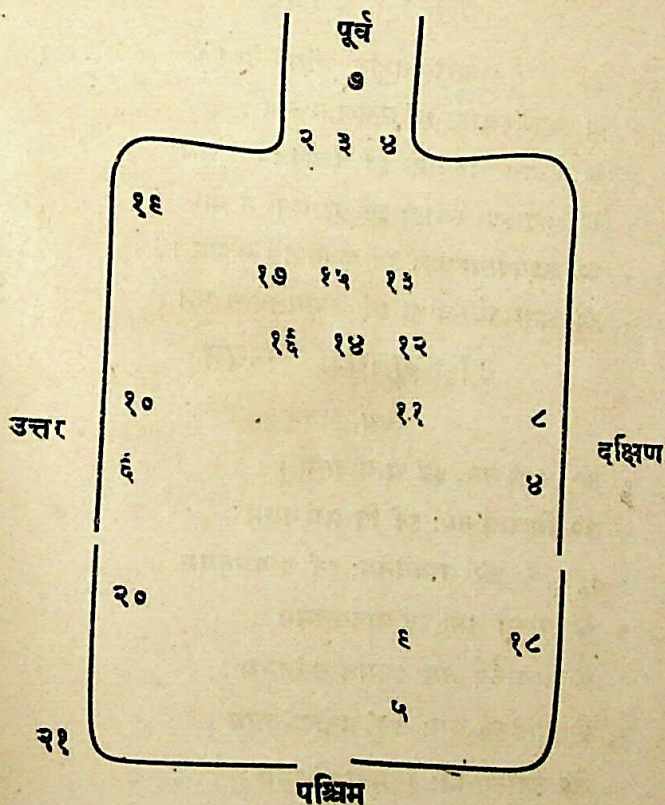 पूर्व
७
२ ३ ४
१९
१७ १५ १३
१६ १४ १२
१० ११ ८
उत्तर
दक्षिण
६ ४
२०
९ १८
५
२१
पश्चिम